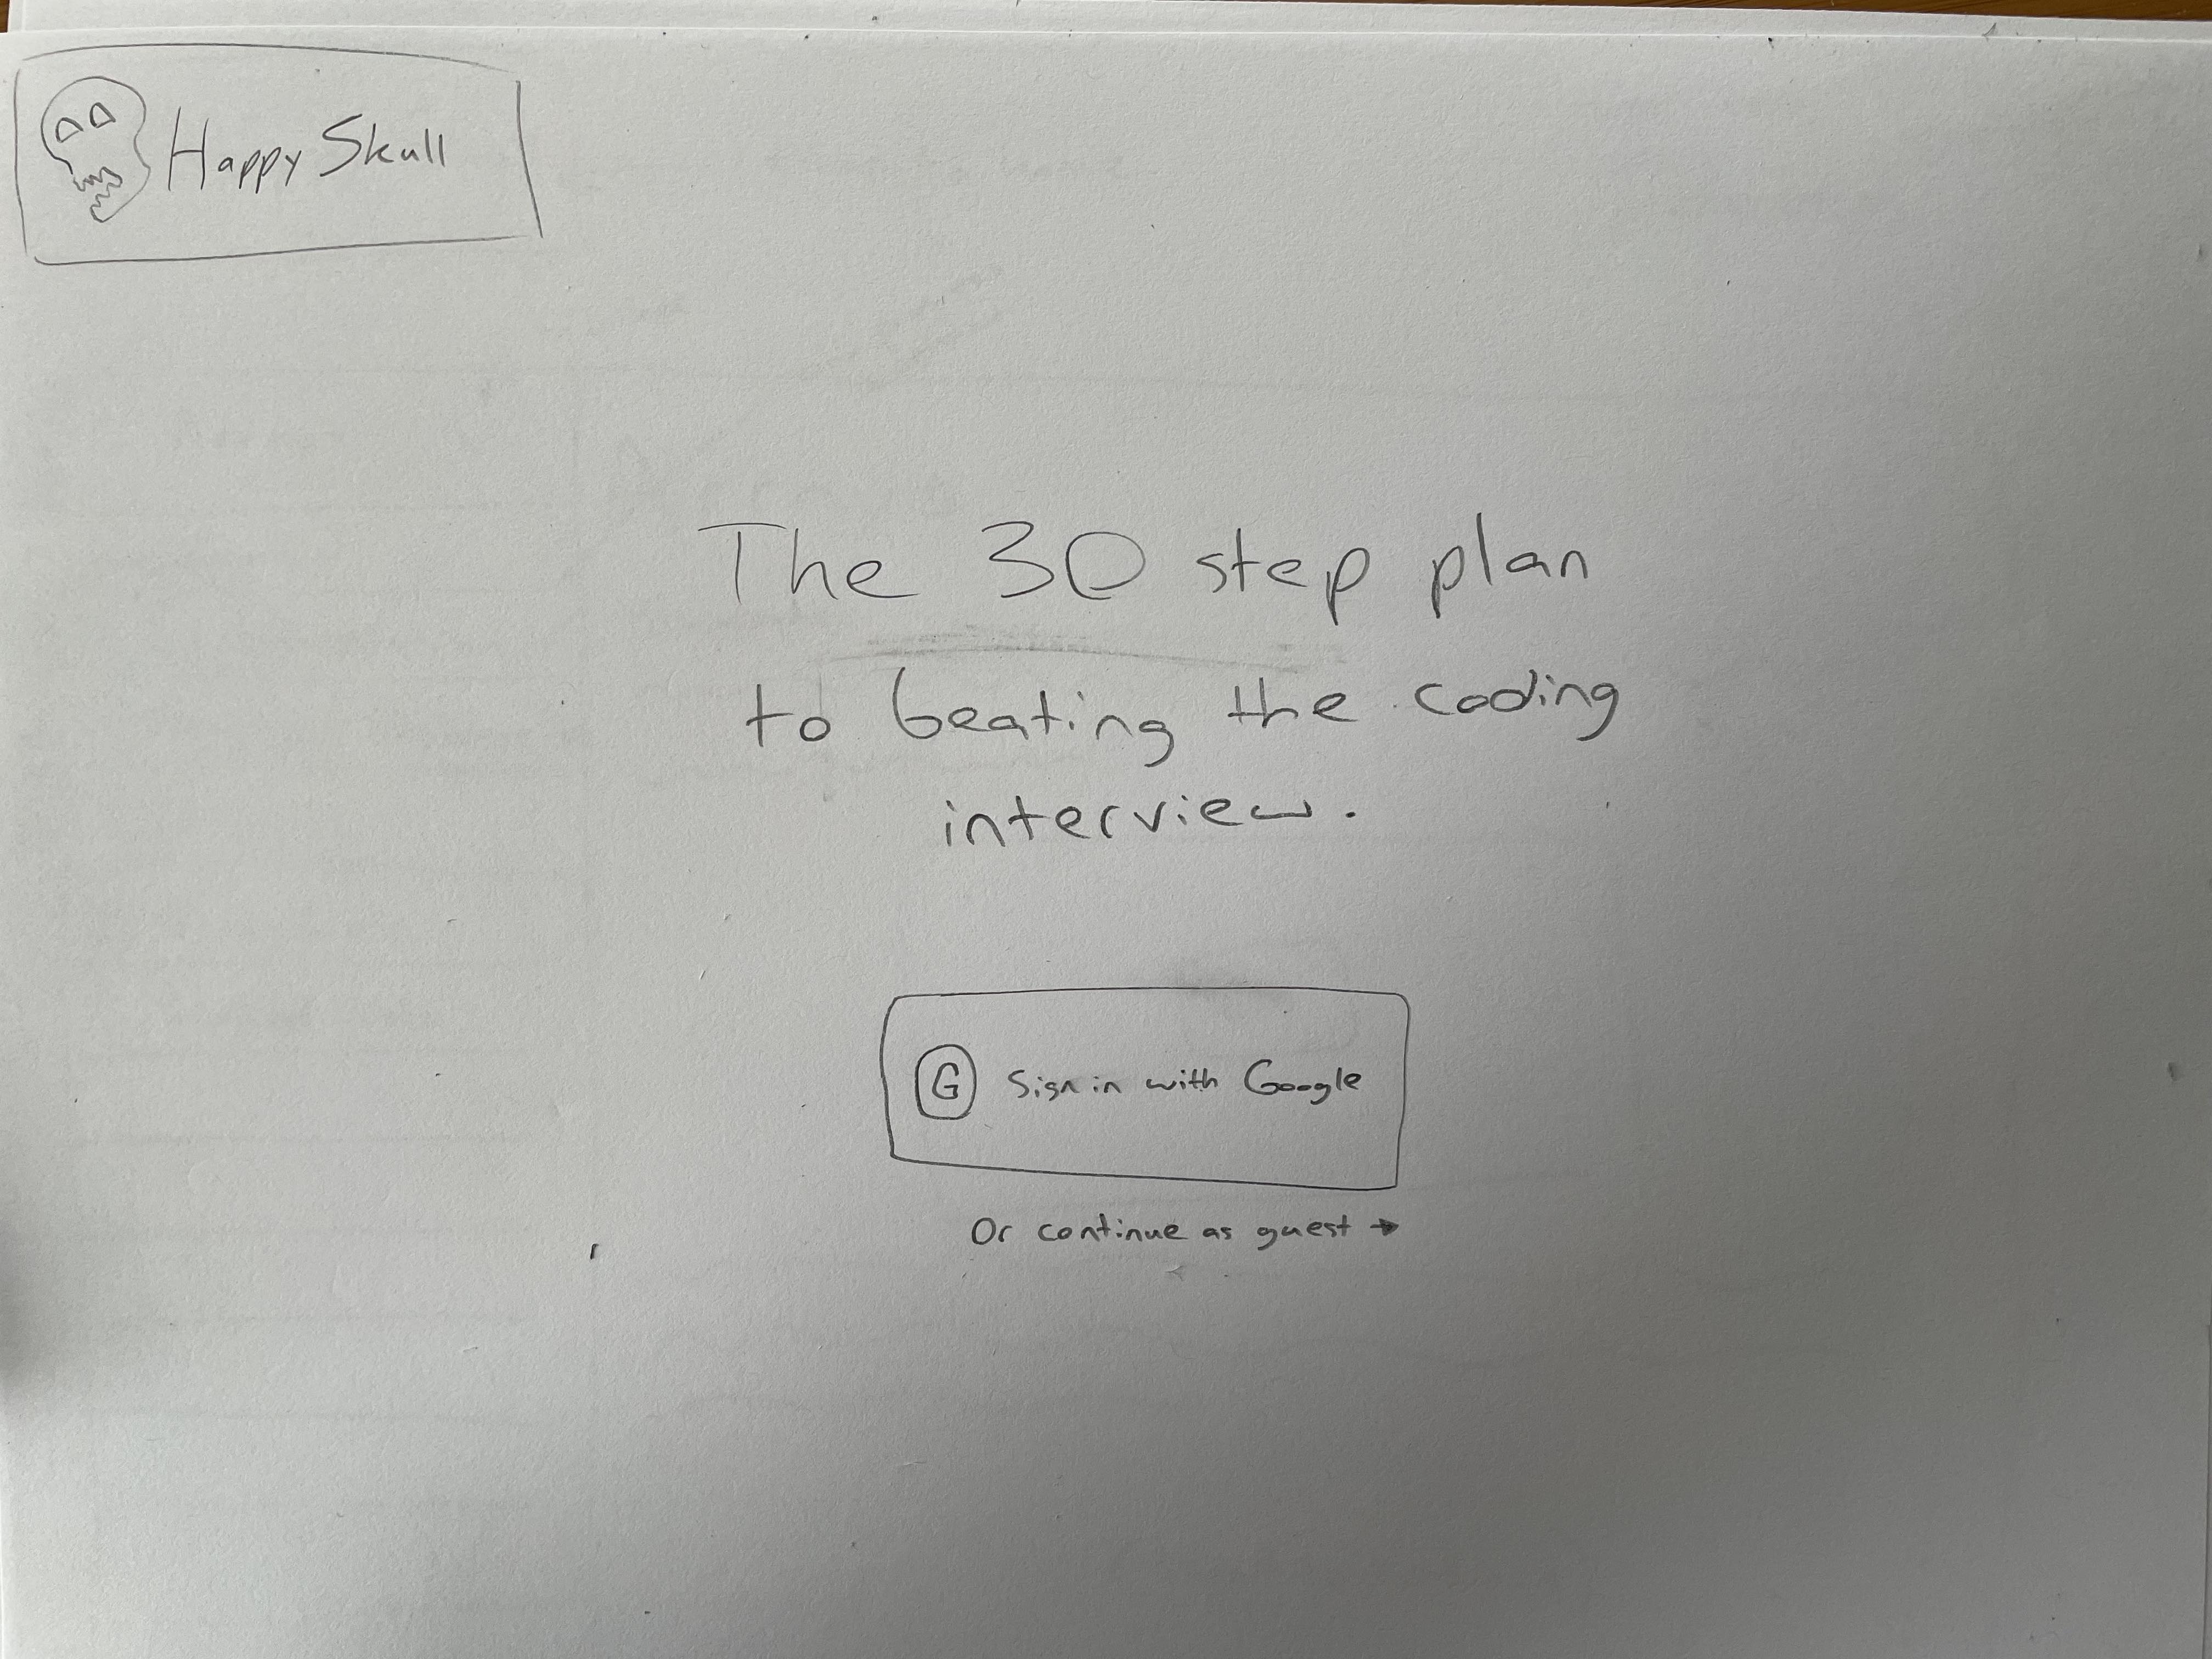 Happy Skull
The 30 step plan
to beating the coding
interview.
G Sign in with Google
Or continue as guest →